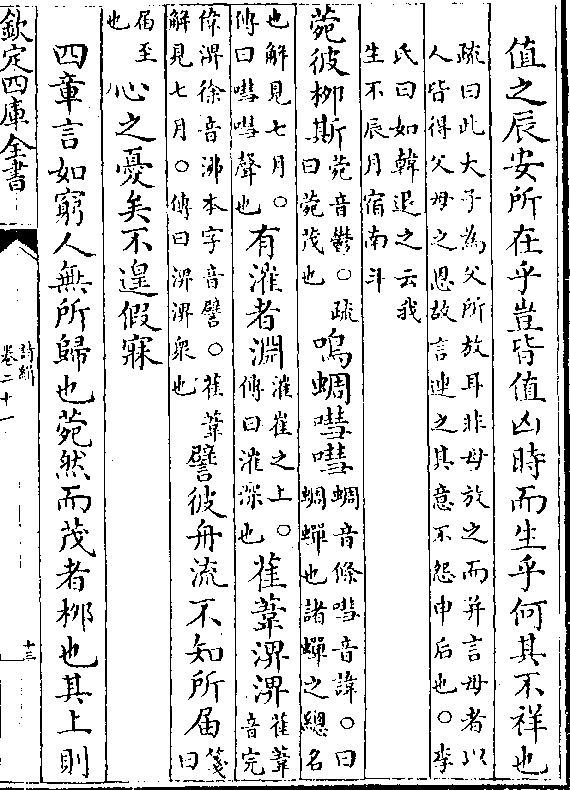 值之辰安所在乎豈皆值凶時而生乎何其不祥也
疏曰此大子為父所放耳非母放之而并言母者以
人皆得父母之恩故言連之其意不怨申后也○李
氏曰如韓退之云我
生不辰月宿南斗
菀彼桞斯
菀音鬱○疏
曰菀茂也
鳴蜩嘒嘒
蜩音條嘒音諱○曰
蜩蟬也諸蟬之總名
也解見七月○
傳曰嘒嘒聲也
有漼者淵
漼崔之上○
傳曰漼深也
萑葦淠淠
萑葦
音完
偉淠徐音沸本字音譬○萑葦
解見七月○傳曰淠淠衆也
譬彼舟流不知所届
箋曰
届至
也
心之憂矣不遑假寐
四章言如窮人無所歸也菀然而茂者桞也其上則
欽定四庫全書
詩緝
卷二十一
十三